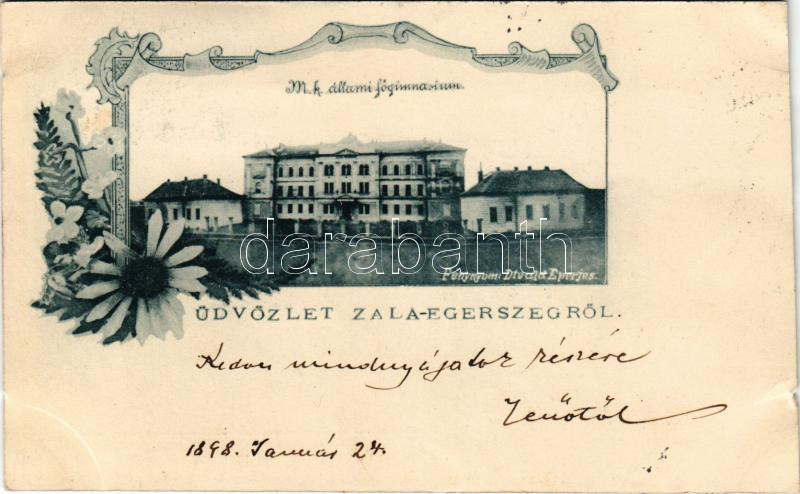 M. k. állami főgimnasium.
darabanth
Fénynyom. Divald Eperjes.
ÜDVÖZLET ZALA-EGERSZEGRŐL.
Kedves mindnyájatok részére
Jenőtől
1898. Január 24.